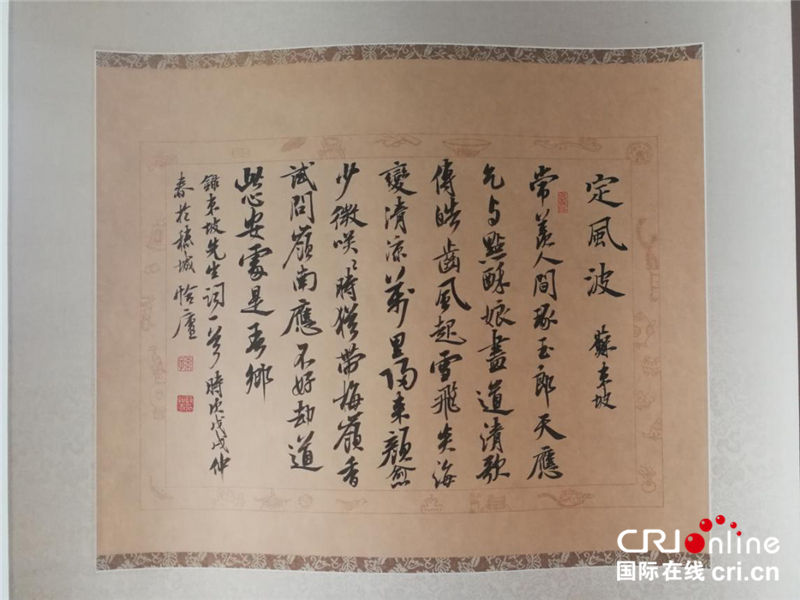 定風波 蘇東坡
常羨人間琢玉郎天應
乞与點酥娘盡道清歌
傳皓齒風起雪飛炎海
變清凉萬里歸來顏愈
少微咲〻時猶帶梅嶺香
試問嶺南應不好却道
此心安處是吾鄉
錄東坡先生詞一首時次戊戌仲
春於穗城怡廬
CRIonline
国际在线 cri.cn